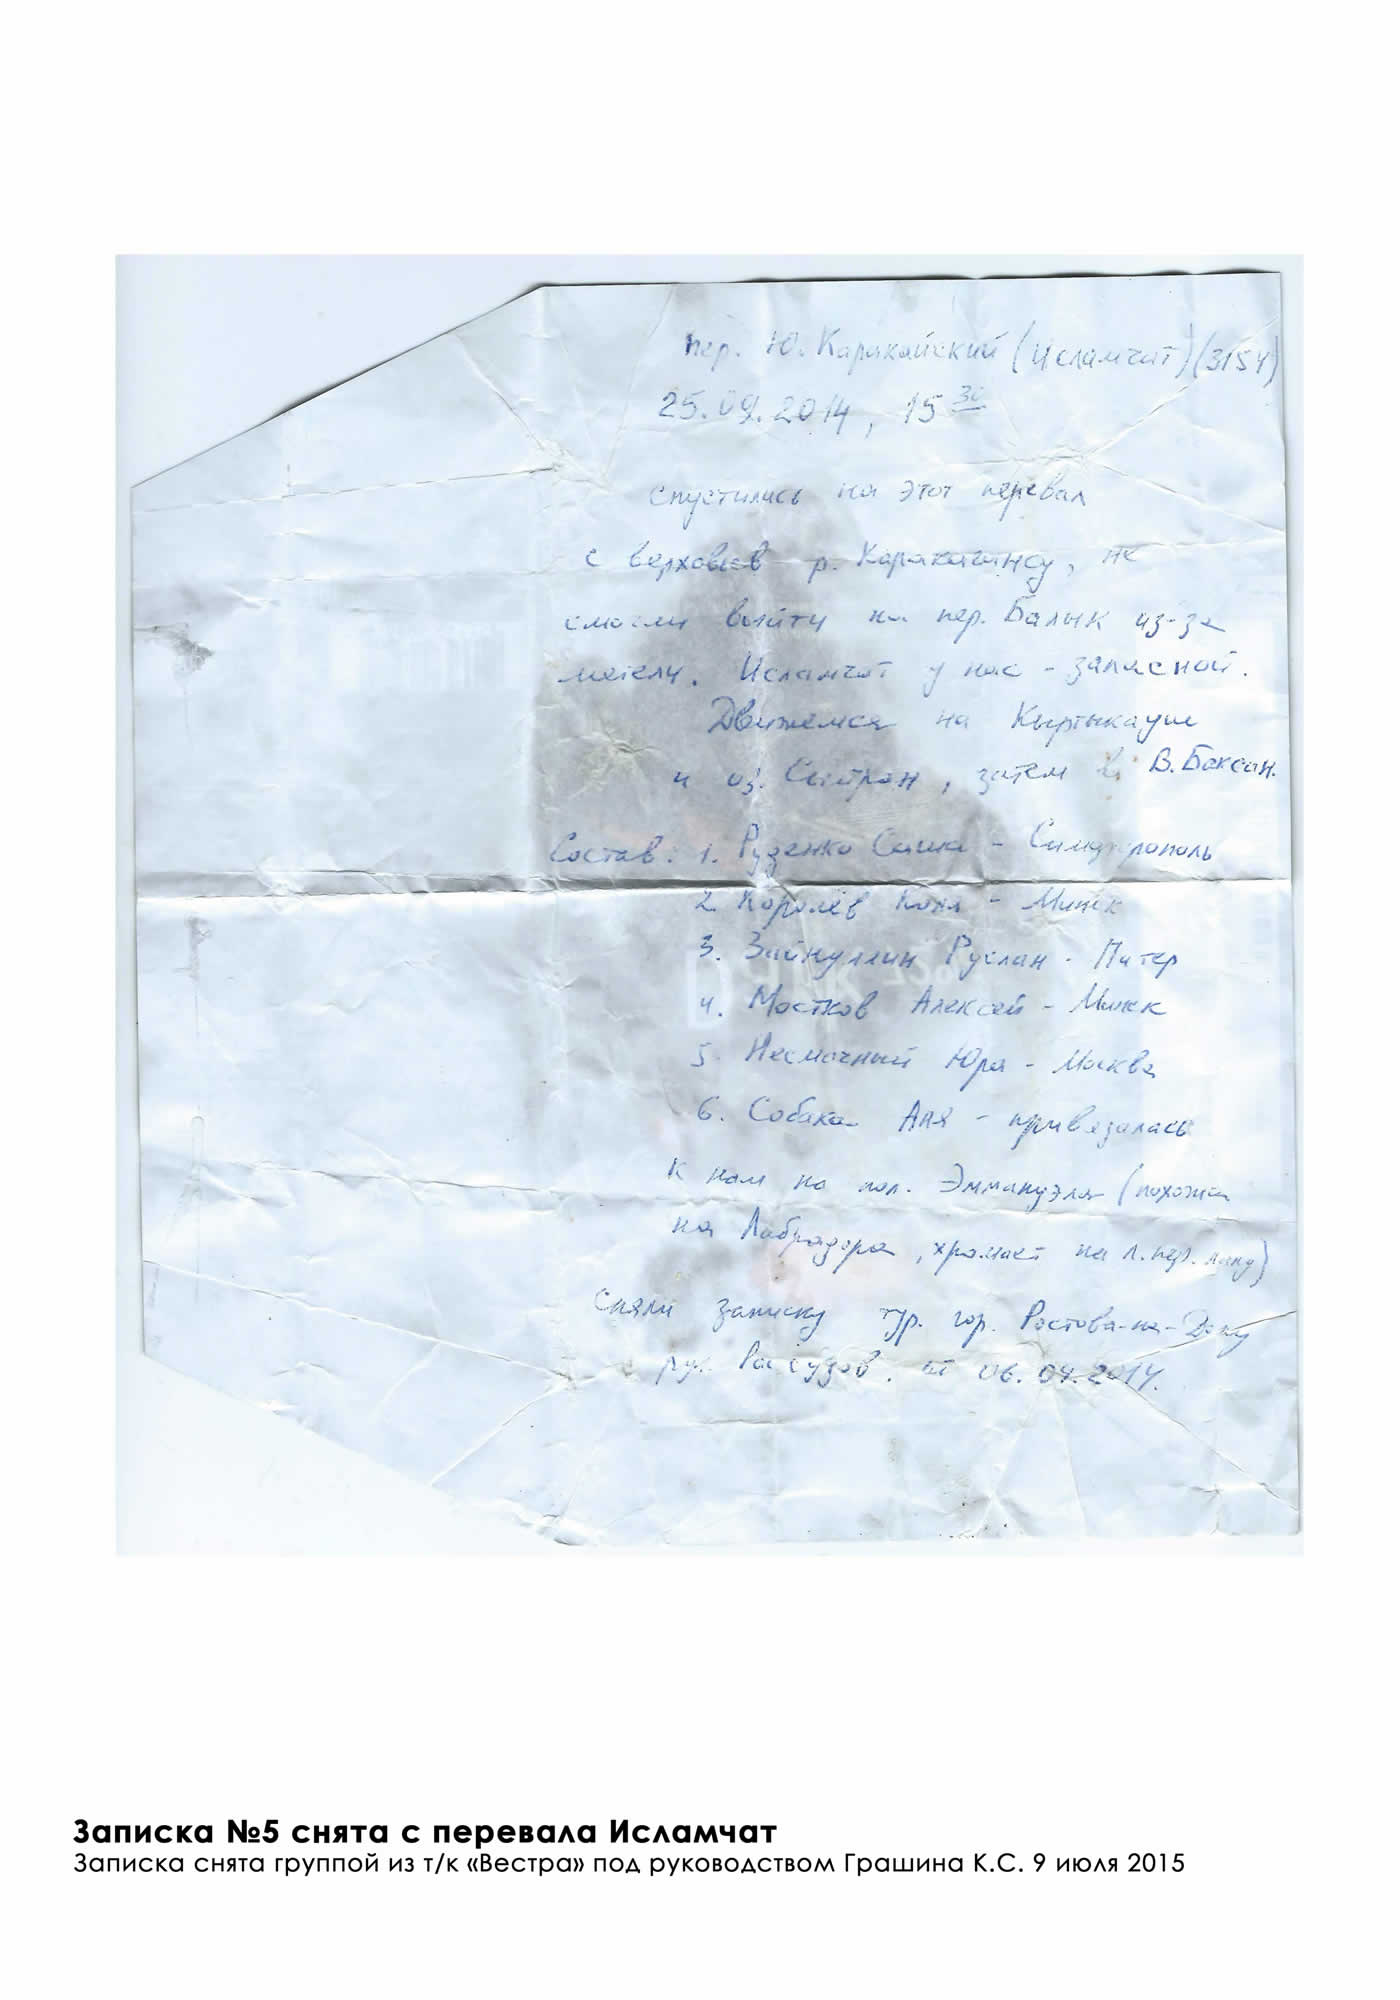 пер. Ю. Каракайский (Исламчат) (3154)
25.09.2014, 15 30
Спустились на этот перевал
с верховьев р. не
смогли выйти на пер. Балык из-за
метели. Исламчат у нас - запасной.
Движемся на Кыртыкауш
и оз. Сылтран, затем в В.Баксан.
Состав: 1. Руденко Саша - Симферополь
2. Королёв Коля - Минск
3. Зайнуллин Руслан - Питер
4. Мостков Алексей - Минск
5. Несмачный Юра - Москва
6. Собака Аля - привязалась
к нам на пол. Эммануэля (похожа
на Лабрадора, хромает на л. пер. лапу)
Сняли записку тур. гор. Ростова-на-Дону
рук. Рассудов. от
Записка №5 снята с перевала Исламчат
Записка снята группой из т/к «Вестра» под руководством Грашина К.С. 9 июля 2015